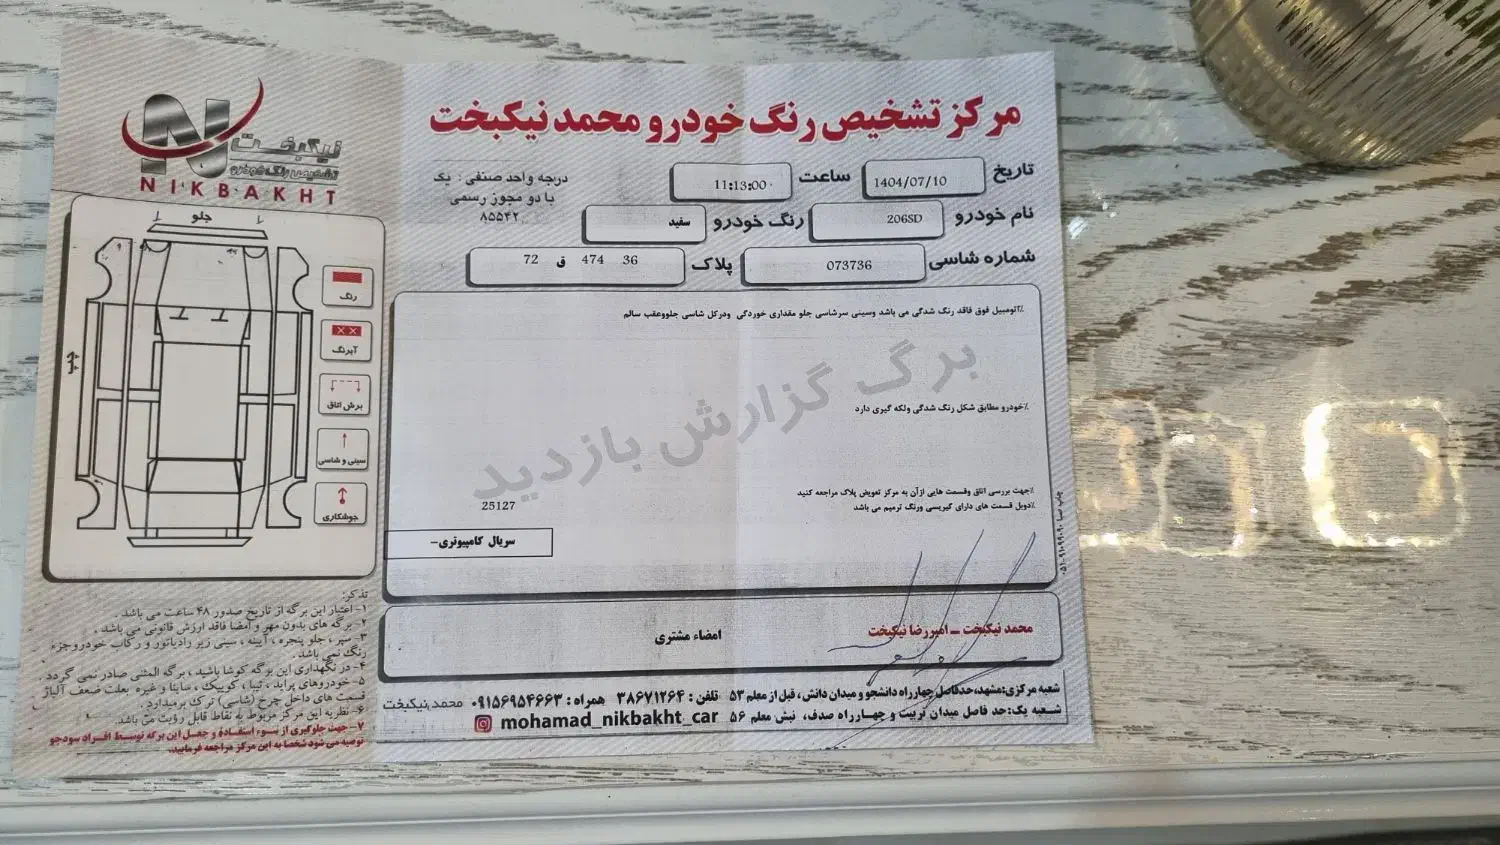 مرکز تشخیص رنگ خودرو محمد نیکبخت
نیکبخت
تشخیص رنگ خودرو
NIKBAKHT
درجه واحد صنفی : یک
با دو مجوز رسمی
۸۵۵۴۲
تاریخ 1404/07/10 ساعت 11:13:00
نام خودرو 206SD رنگ خودرو سفید
شماره شاسی 073736 پلاک 36 474 ق 72
٪اتومبیل فوق فاقد رنگ شدگی می باشد وسینی سرشاسی جلو مقداری خوردگی ودرکل شاسی جلووعقب سالم
٪خودرو مطابق شکل رنگ شدگی ولکه گیری دارد
٪جهت بررسی اتاق وقسمت هایی ازآن به مرکز تعویض پلاک مراجعه کنید
٪دوبل قسمت های دارای گیریسی ورنگ ترمیم می باشد
25127
سریال کامپیوتری-
برگ گزارش بازدید
جلو
چپ
رنگ
آبرنگ
برش اتاق
سینی و شاسی
جوشکاری
محمد نیکبخت _ امیررضا نیکبخت
امضاء مشتری
تذکر:
۱- اعتبار این برگه از تاریخ صدور ۴۸ ساعت می باشد .
۲- برگه های بدون مهر و امضا فاقد ارزش قانونی می باشد .
۳- سپر ، جلو پنجره ، آیینه ، سینی زیر رادیاتور و رکاب خودرو جزء
رنگ نمی باشد .
۴- در نگهداری این برگه کوشا باشید ، برگه المثنی صادر نمی گردد .
۵- خودروهای پراید ، تیبا ، کوییک ، ساینا و غیره بعلت ضعف آلیاژ
قسمت های داخل چرخ (شاسی) ترک برمیدارد .
۶- نظریه این مرکز مربوط به نقاط قابل رؤیت می باشد.
۷- جهت جلوگیری از سوء استفاده و جعل این برگه توسط افراد سودجو
توصیه می شود شخصا به این مرکز مراجعه فرمایید.
شعبه مرکزی:مشهد،حدفاصل چهارراه دانشجو و میدان دانش، قبل از معلم ۵۳ تلفن : ۳۸۶۷۱۲۶۴ همراه : ۰۹۱۵۶۹۵۴۶۶۳ محمد نیکبخت
شعبه یک:حد فاصل میدان تربیت و چهارراه صدف، نبش معلم ۵۶ mohamad_nikbakht_car